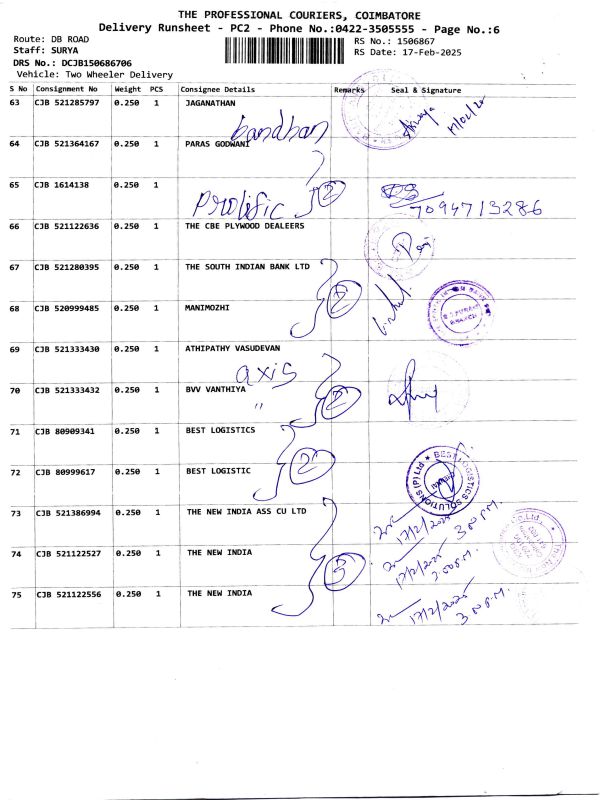 THE PROFESSIONAL COURIERS, COIMBATORE
Delivery Runsheet - PC2 - Phone No.:0422-3505555 - Page No.:6
Route: DB ROAD
Staff: SURYA
DRS No.: DCJB150686706
Vehicle: Two Wheeler Delivery
RS No.: 1506867
RS Date: 17-Feb-2025
S No Consignment No Weight PCS Consignee Details Remarks Seal & Signature
63 CJB 521285797 0.250 1 JAGANATHAN
bandhan
64 CJB 521364167 0.250 1 PARAS GODWANI
65 CJB 1614138 0.250 1
Prolific 2 7094713286
66 CJB 521122636 0.250 1 THE CBE PLYWOOD DEALEERS
67 CJB 521280395 0.250 1 THE SOUTH INDIAN BANK LTD
2
68 CJB 520999485 0.250 1 MANIMOZHI
69 CJB 521333430 0.250 1 ATHIPATHY VASUDEVAN
axis
70 CJB 521333432 0.250 1 BVV VANTHIYA
" 2
71 CJB 80909341 0.250 1 BEST LOGISTICS
2
72 CJB 80999617 0.250 1 BEST LOGISTIC
BEST LOGISTICS SOLUTIONS (P) Ltd
73 CJB 521386994 0.250 1 THE NEW INDIA ASS CU LTD
17/2/2025 3.00 P.M.
74 CJB 521122527 0.250 1 THE NEW INDIA
3 17/2/2025 3.00 P.M.
75 CJB 521122556 0.250 1 THE NEW INDIA
17/2/2025 3.00 P.M.